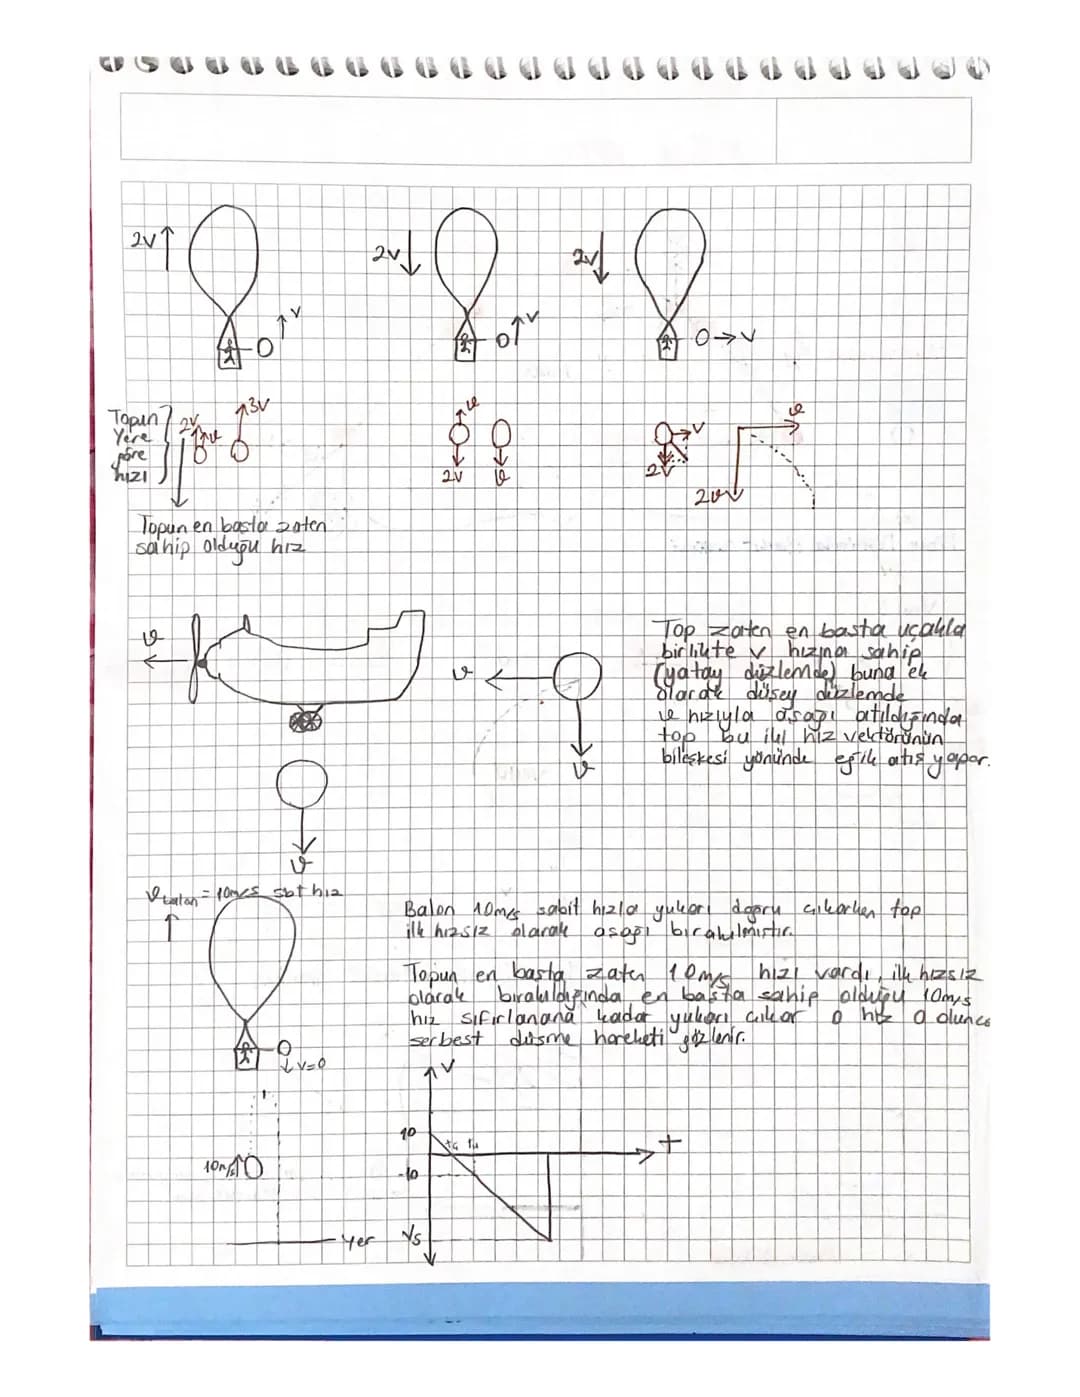 2V
V
2V
V
2V
V
Topun
Yere
göre
hızı
2V
v
3V
v
2V
v
V
2V
v
2v
Topun en başta zaten
sahip olduğu hız
v
v
v
v
Top zaten en başta uçakla
birlikte v hızına sahip
(yatay düzlemde) buna ek
olarak düşey düzlemde
v hızıyla aşağı atıldığında
top bu iki hız vektörünün
bileşkesi yönünde eğik atış yapar.
Vbalon = 10m/s sbt hız
Balon 10m/s sabit hızla yukarı doğru çıkarken top
ilk hızsız olarak aşağı bırakılmıştır.
Topun en başta zaten 10m/s hızı vardı, ilk hızsız
olarak bırakıldığında en başta sahip olduğu 10m/s
hız sıfırlanana kadar yukarı çıkar o hız 0 olunca
serbest düşme hareketi gözlenir.
V=0
10m/s
Yer
V
10
-10
Vs
t